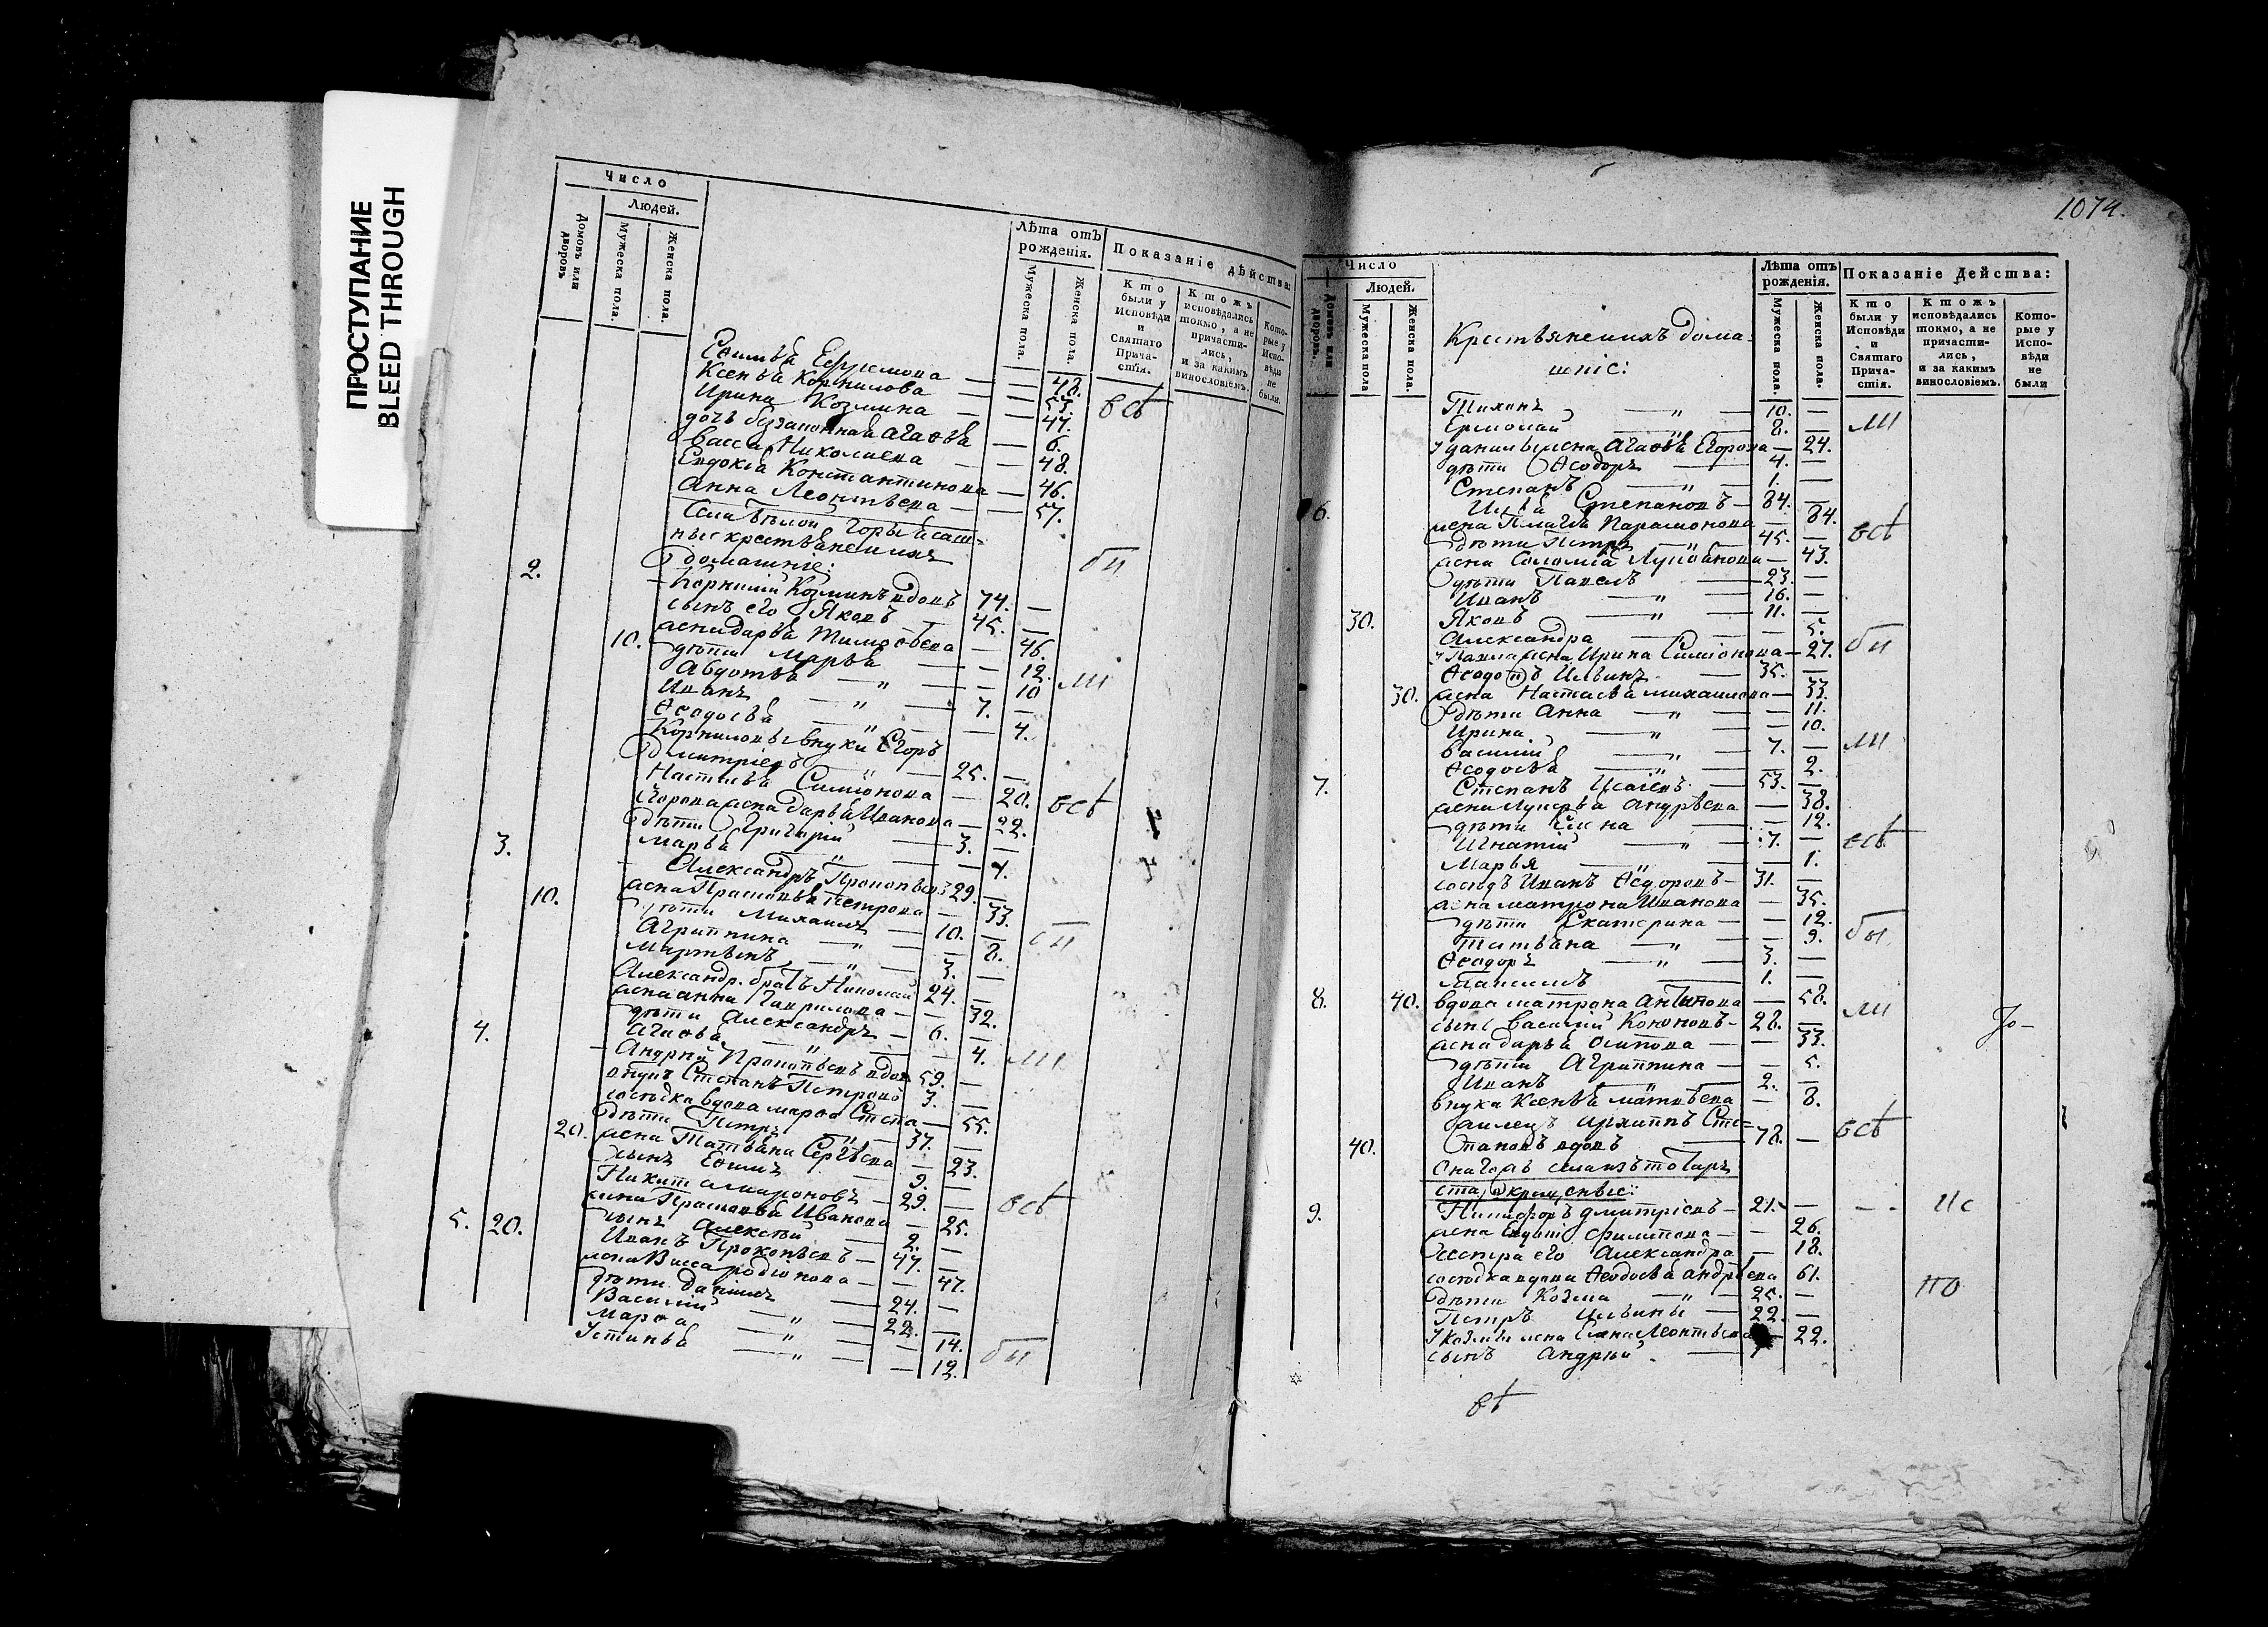 ПРОСТУПАНИЕ
BLEED THROUGH
Число
Людей.
Домовъ или дворовъ
Мужеска пола.
Женска пола.
Лѣта отъ рожденія.
Мужеска пола.
Женска пола.
Показаніе дѣйства:
Кто были у Исповѣди и Святаго Прича-стія.
Ктожъ исповѣдались токмо, а не причасти-лись, и за какимъ винословіемъ.
Кото-рые у Испо-вѣди не были.
Ефремова — — 48.
Ксенья Корнилова — — 53. всѣ
Ирина Козмина — — 47.
дочь Агафья — 6.
Васса Николаева — — 48.
Евдокія Константинова — 46.
Анна Леонтьева — — 57.
Горы
ные крестьяне
домашніе: бы
2. Корнилій Козминъ вдовъ 74. —
сынъ его Яковъ — 45. —
жена Дарья Тимофеева — 46.
10. дѣти Марья — — 12.
Авдотья — " — — 10 ли
Иванъ — " — 7. —
Феодосья — " — — 4.
Корниловы внуки Егоръ
Дмитріевъ — " — 25. —
Настасья Симіонова — 20. всѣ
Егорова жена Дарья Иванова — 22.
дѣти Григорій — 3. —
Марья — " — — 4.
3. Александръ Прокопьевъ 29. —
жена Прасковья Петрова — 33.
10. дѣти Михаилъ — 10. —
Агриппина — " — — 8. бы
Мартынъ — " — 3. —
Александр. братъ Николай 24. —
жена Анна Гаврилова — — 32.
дѣти Александръ — 6. —
Агафья — " — — 4.
4. Андрей Прокопьевъ вдов 59. — ли
внукъ Степанъ Петровъ 3. —
сосѣдка вдова Марфа Степа — 55.
дѣти Петръ — " — 37. —
20. жена Татьяна Сергѣева — 23.
сынъ Ефимъ — 9. —
Никита Мироновъ — 29. —
жена Прасковья Иванова — 25. всѣ
сынъ Алексѣй — 2. —
5. 20. Иванъ Прокопьевъ — 47. —
жена Васса Родіонова — — 47.
дѣти Даніилъ — 24. —
Василій — " — 22. —
Марфа — " — — 14.
Устинья — " — — 12. бы
1074.
Число
Людей.
Домовъ или дворовъ.
Мужеска пола
Женска пола.
Крестьянскихъ дома-
шніе:
Лѣта отъ рожденія.
Мужеска пола.
Женска пола.
Показаніе Действа:
Кто были у Исповѣди и Святаго Прича-стія.
Ктожъ исповѣдались токмо, а не причасти-лись, и за какимъ винословіемъ.
Кото-рые у Испо-вѣди не были
Тихонъ — " — 10. —
Ермолай — " — 8. — ли
У Данилы жена Агафья Егорова — 24.
дѣти Феодоръ — 4. —
Степанъ — " — 1. —
6. Илья Степановъ — 84. —
жена Парамонова — 84.
дѣти Петръ — " — 45. — всѣ
жена Соломія — 43.
дѣти Павелъ — 23. —
Иванъ — " — 16. —
30. Яковъ — " — 11. —
Александра — — 5.
У Павла жена Ирина Симіонова — 27. бы
Ильинъ — 35. —
30. жена Настасья Михаилова — 33.
дѣти Анна — " — — 11.
Ирина — " — — 10.
Василій — " — 7. — ли
Феодосья — " — — 2.
7. Степанъ Исаіевъ — 53. —
жена Лукерья Андрѣева — 38.
дѣти Елена — — 12.
Игнатій — " — 7. — всѣ
Марья — " — — 1.
сосѣдъ Иванъ Феодоровъ — 31. —
жена Матрона Иванова — 35.
дѣти Екатерина — — 12.
Татьяна — " — — 9. бы
Феодоръ — " — 3. —
1. —
8. 40. вдова Матрона Антипова — 58. ли
сынъ Василій Кононовъ — 28. —
жена Дарья Осипова — — 33.
дѣти Агриппина — — 5.
Иванъ — " — 2. —
внука Ксенья Матвѣева — 8.
Архиппъ Сте-
40. пановъ вдовъ — 78. — всѣ
9. Никифоръ Дмитріевъ — 21. — — - Ис
жена Филипова — — 26.
сестра его Александра — 18.
сосѣдка вдова Феодосья Андрѣева 61.
дѣти Козма — " — 25. — по
Петръ Ильины — 22. —
У Козмы жена Елена Леонтьева — 22.
сынъ Андрей —
вѣ